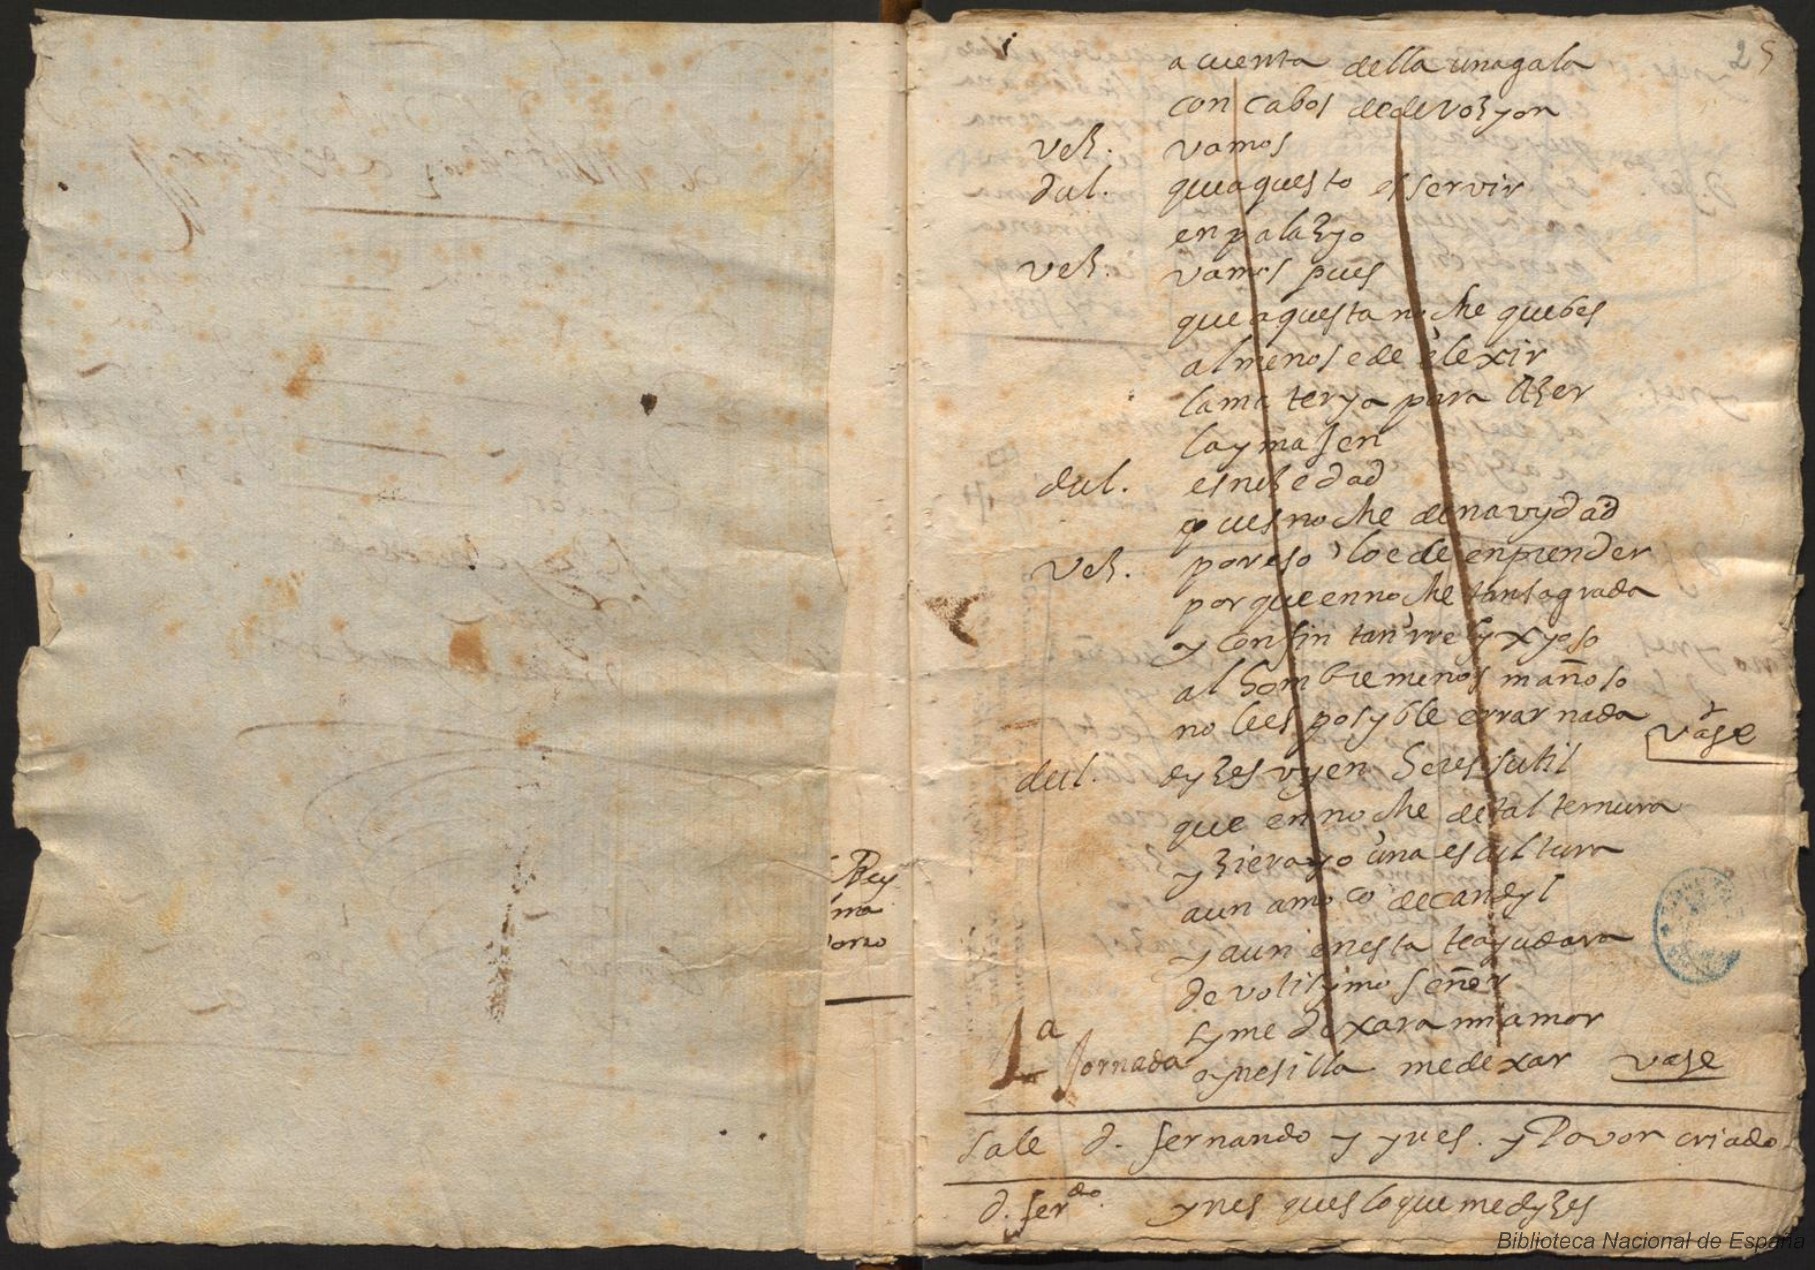 Rey
ma
orzo
25
a cuenta della una gala
con cabos de devozyon
vel. vamos
dul. que aquesto es servir
en palazyo
vel. vamos pues
que aquesta noche que bes
al menos e de elexir
la materya para azer
la ymajen
dul. es nezedad
pues noche de navydad
vel. por eso lo e de enprender
porque en noche tan sagrada
y con fin tan rrelyxyoso
al honbre menos mañoso
no le es posyble errar nada vase
dul. dyzes vyen seres sutil
que en noche de tal ternura
yziera yo una escultura
a un amo co de candyl
y aun en esta te ayudara
devotisimo señor
sy me dexara mi amor
1a Jornada aynesilla me dexar vase
sale d. fernando y ynes. y Pavor criado
d. ferdo. ynes ques lo que me dyzes
Biblioteca Nacional de España